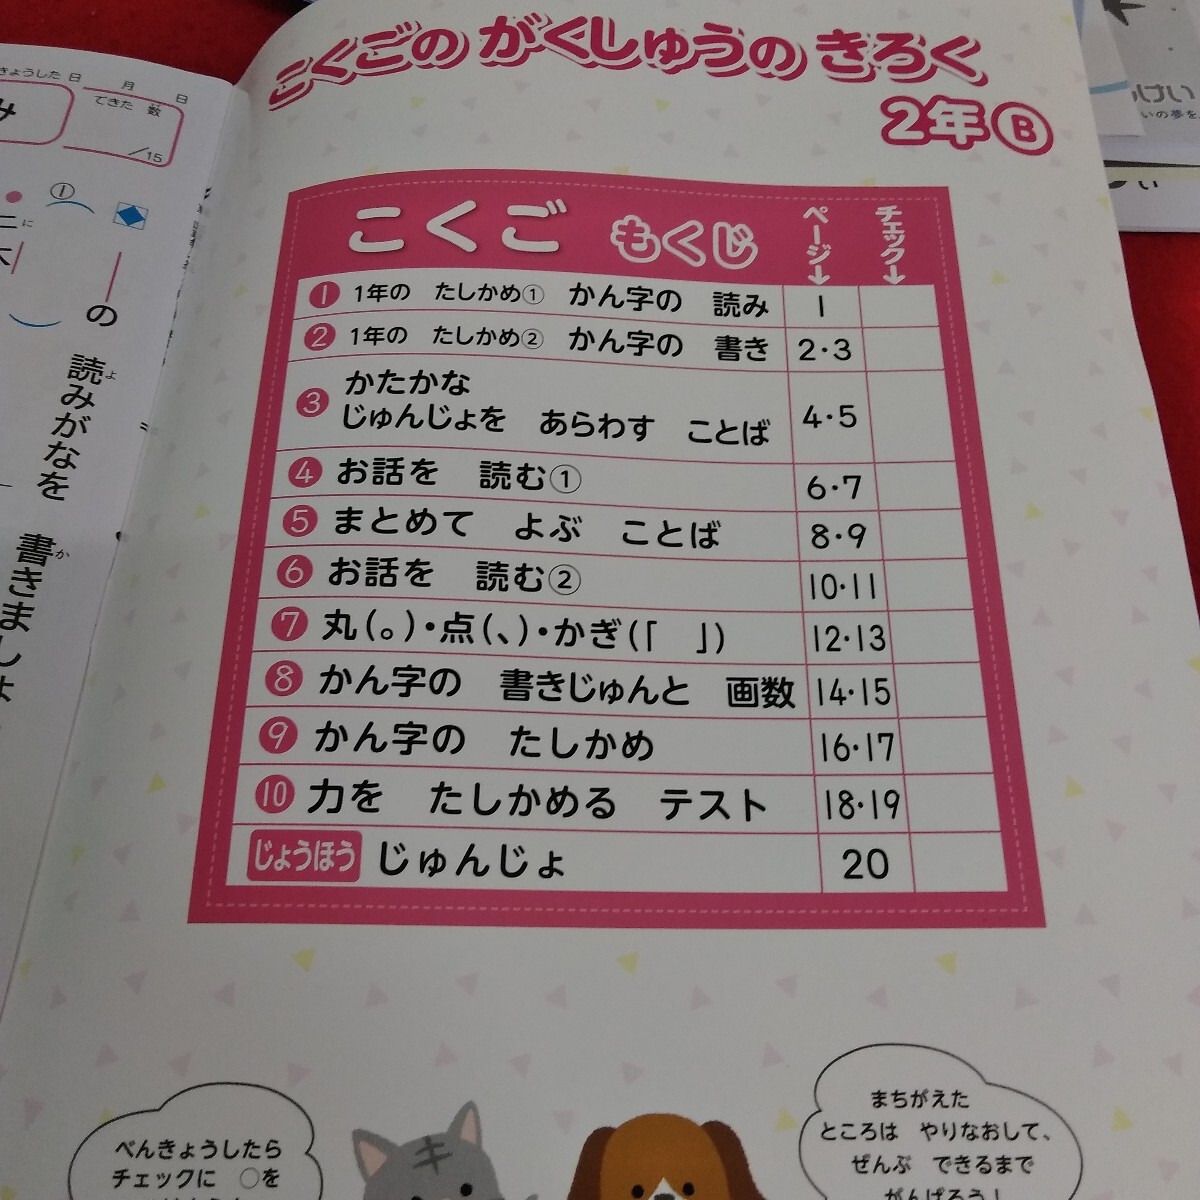 こくごの がくしゅうの きろく
2年Ⓑ
こくご もくじ ページ↓ チェック↓
❶ 1年の たしかめ① かん字の 読み 1
❷ 1年の たしかめ② かん字の 書き 2・3
❸ かたかな
じゅんじょを あらわす ことば 4・5
❹ お話を 読む① 6・7
❺ まとめて よぶ ことば 8・9
❻ お話を 読む② 10・11
❼ 丸(。)・点(、)・かぎ(「 」) 12・13
❽ かん字の 書きじゅんと 画数 14・15
❾ かん字の たしかめ 16・17
❿ 力を たしかめる テスト 18・19
じょうほう じゅんじょ 20
べんきょうしたら
チェックに ○を
まちがえた
ところは やりなおして、
ぜんぶ できるまで
がんばろう!
キ
きょうした 日 月 日
できた 数
/15
み
①
の 読みがなを 書きましょ
よ
か
に